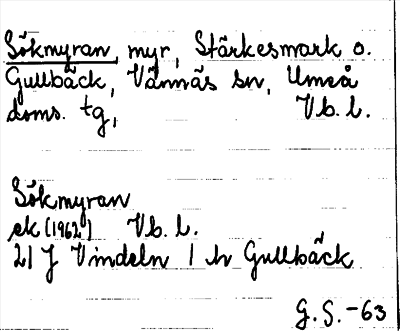 Sökmyran, myr, Stärkesmark o.
Gullbäck, Vännäs sn, Umeå
doms. tg, Vb. l.
Sökmyran
ek (1962) Vb. l.
21 J Vindeln 1 hr Gullbäck
G. S. -63